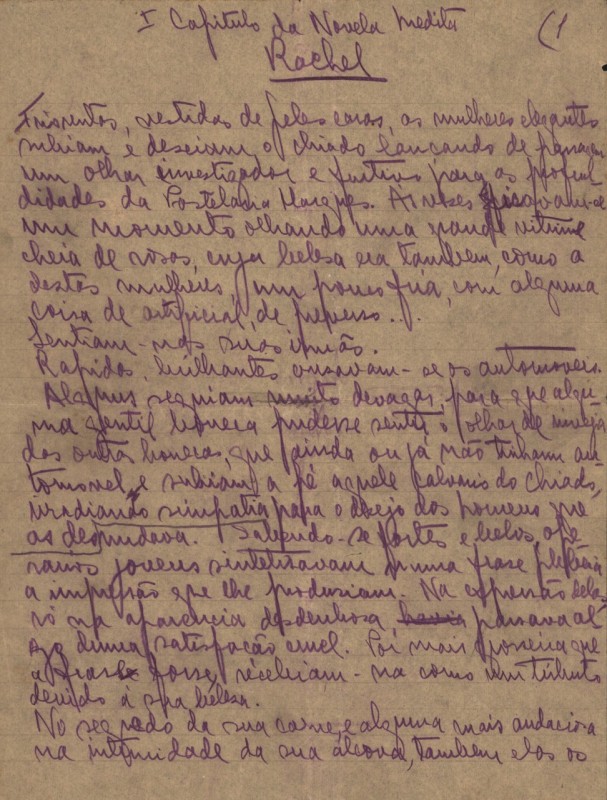 I Capitulo da Novela Inedita (1
Rachel
Friorentos, vestidas de peles caras, as mulheres elegantes
subiam e desciam o Chiado lançando de passagem
um olhar investigador e furtivo para as profun
didades da Pastelaria Marques. Ás vezes
um momento olhando uma grande vitrine
cheia de rosas, cuja beleza era tambem, como a
destas mulheres um pouco fria, com alguma
coisa de artificial, de preverso...
Sentiam-nas suas irmãs.
Rapidos, brilhantes cruzavam-se os automoveis.
Alguns seguiam muito devagar, para que algu-
ma gentil boneca pudesse sentir o olhar de inveja
das outras bonecas, que ainda ou já não tinham au-
tomovel, e subiam a pé aquele calvario do Chiado,
irradiando simpatia para o desejo dos homens que
as desnudava. Sabendo-se fortes e belos, ope
rarios jovens sintetisavam numa frase plebeia
a impressão que lhe produziam. Na expressão delas
só na aparencia desdenhosa havia passava al
go duma satisfação cruel. Por mais grosseira que
a frase fosse, recebiam-na como um tributo
devido á sua beleza.
No segredo da sua carne, e alguma mais audaciosa
na intimidade da sua alcova, tambem elas os